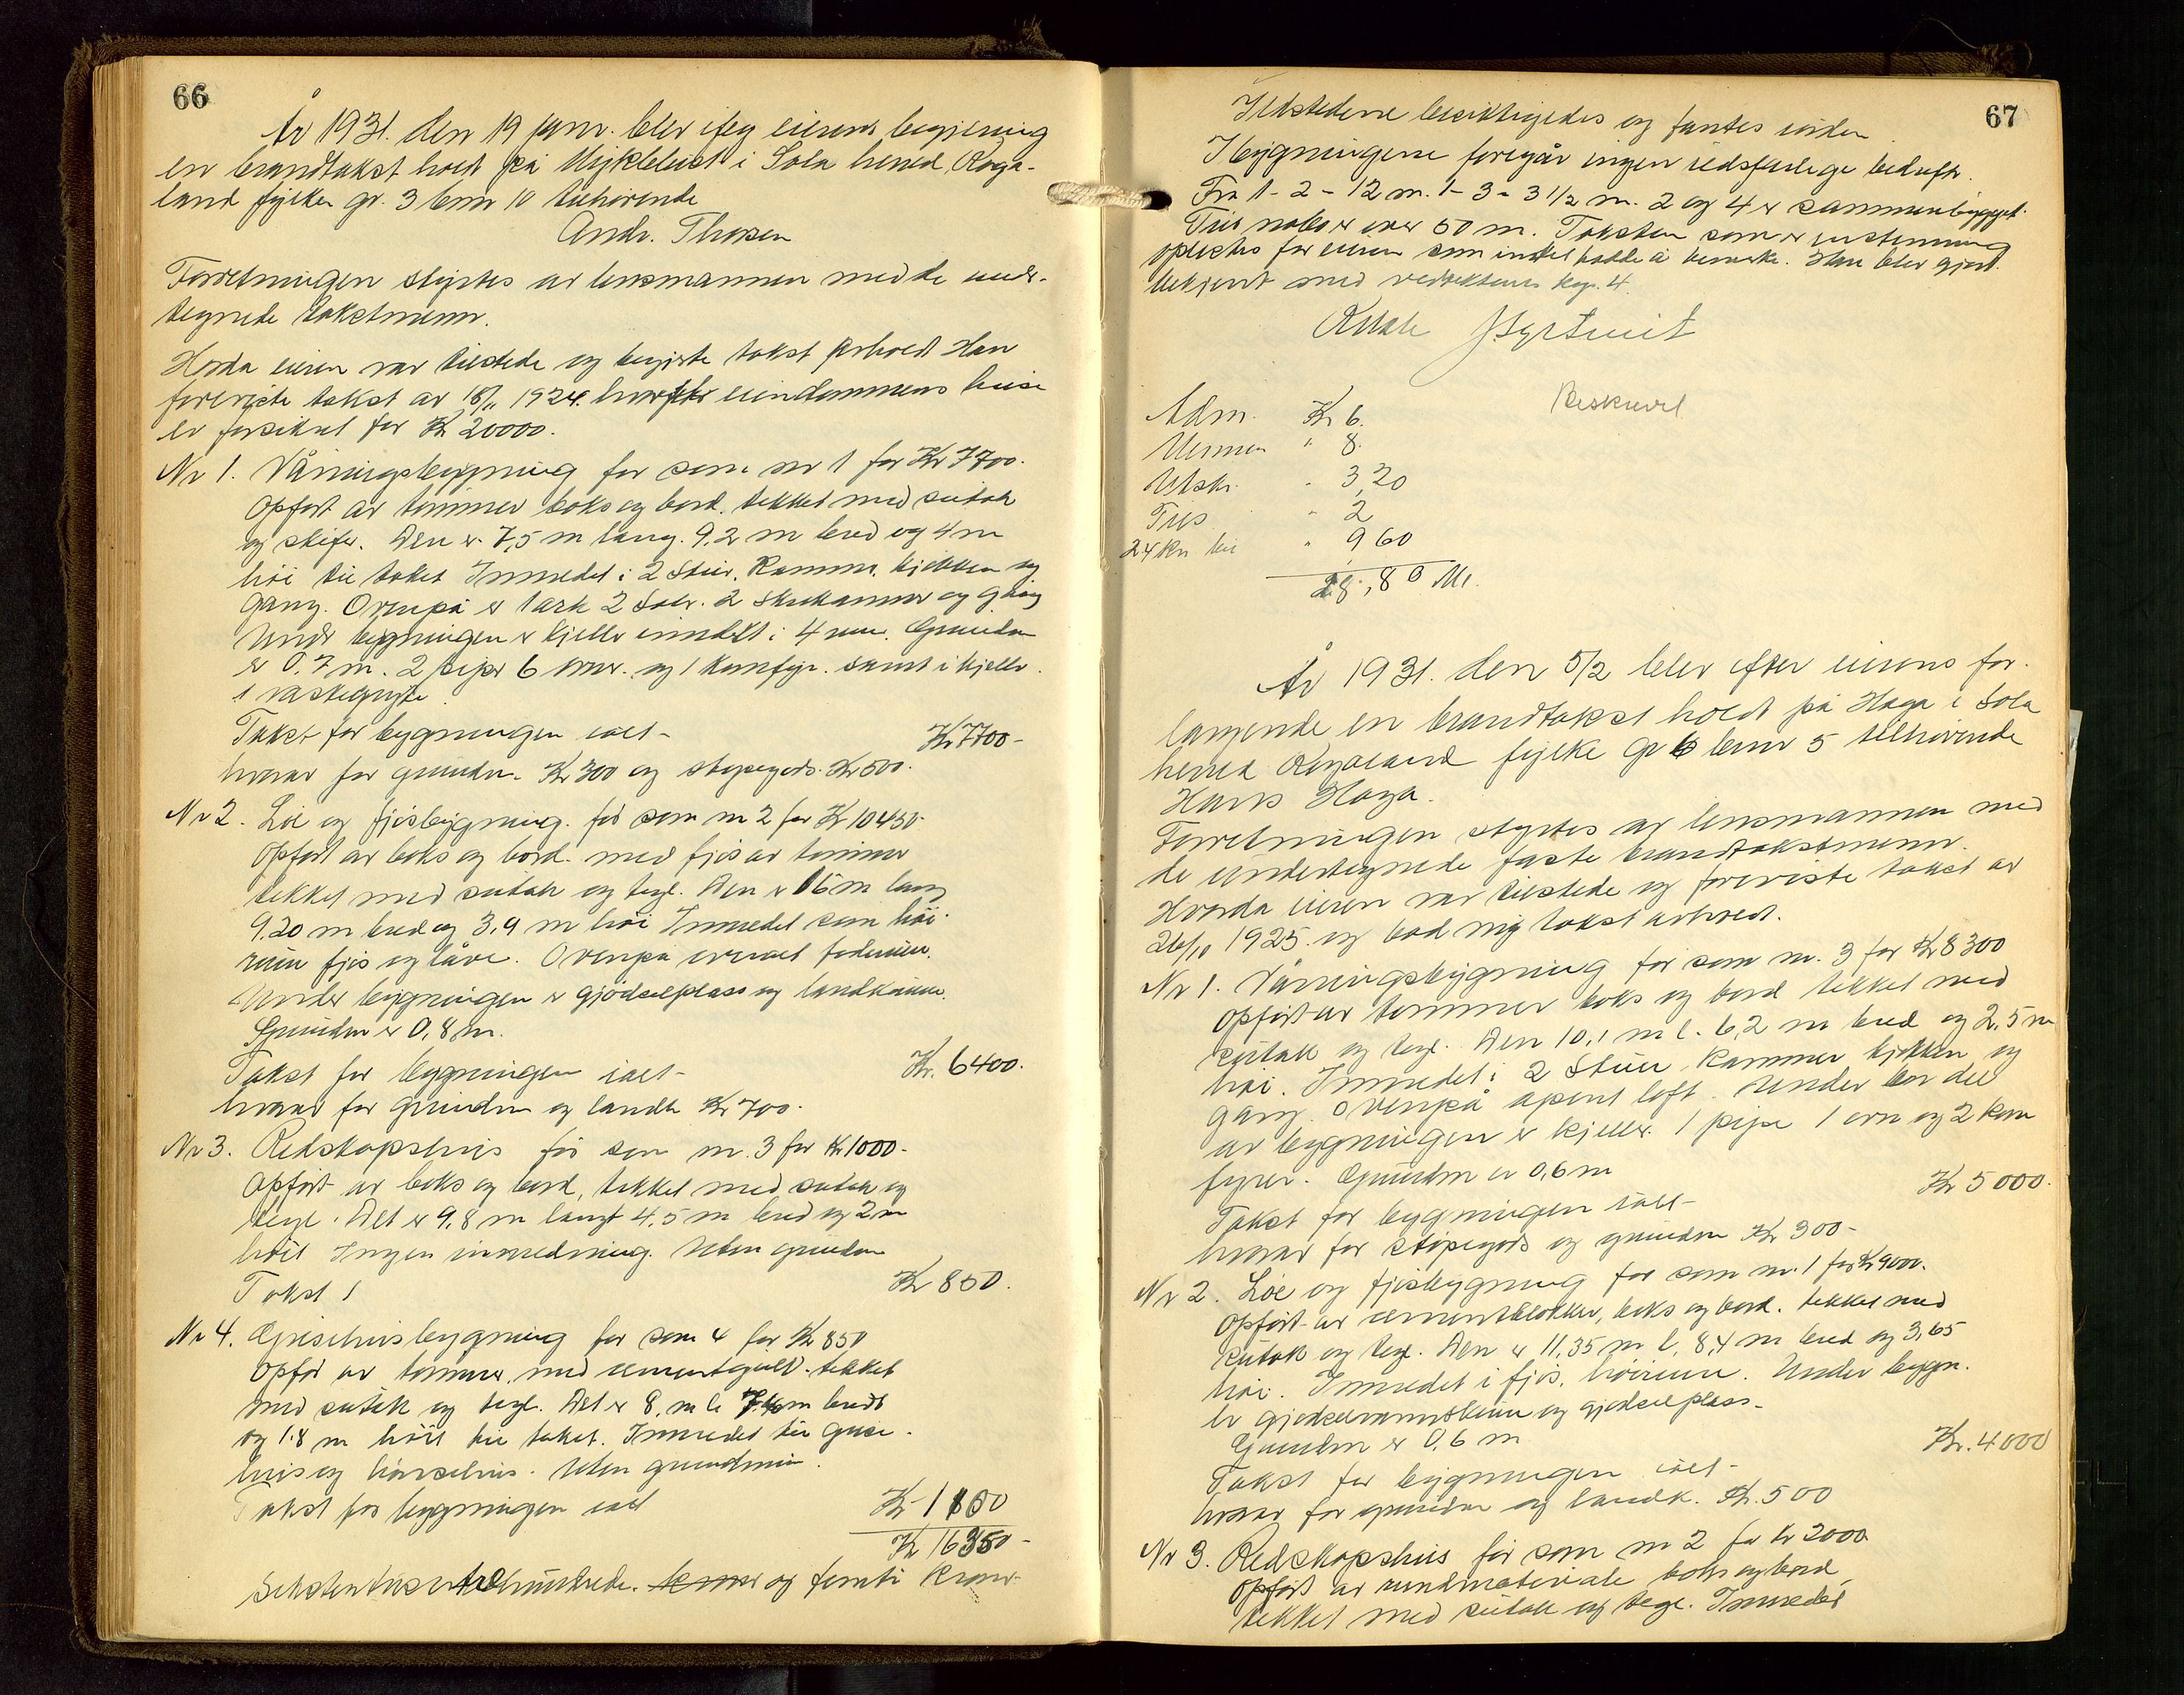 66
År 1931. den 19 janr. blev efter eierens begjæring
en brandtakst holdt på Myklebust i Sola herred, Roga-
land fylke gr. 3 bnr 10 tilhørende
Andr. Thorsen
Forretningen styrtes av lensmannen med de under-
tegnede takstmenn.
Hvorda eieren var tilstede og begjærte takst avholdt Han
foreviste takst av 18/11 1924. hvorefter eiendommens huse
er forsikret for Kr 20000.
Nr 1. Våningsbygning før som nr 1 for Kr 7700.
Opført av tømmer boks og bord. tekket med sutak
og skifer. Den er 7,5 m lang. 9,2 m bred og 4 m
höi til taket Innredet i 2 Stuer. Kammer. kjøkken og
gang. Ovenpå er 1 ark 2 Saler. 2 Skråkammer og gang
Under bygningen er kjeller inndelt i 4 rum. Grunden
er 0,7 m. 2 piper 6 ovner. og 1 komfyr. samt i kjeller.
1 vaskegryte.
Takst for bygningen ialt - Kr 7700 -
hvorav for grunden. Kr 300 og støpegods. Kr 500.
Nr 2. Löe og fjösbygning. før som nr 2 for Kr 10450.
Opført av boks og bord. med fjös av tømmer
tekket med sutak og tegl. Den er 16 m lang
9.20 m bred og 3,9 m höi Innredet som höi-
rum fjös og låve. Ovenpå overalt foderrum.
Under bygningen er gjödselplass og landkum.
Grunden er 0,8 m.
Takst for bygningen ialt - Kr. 6400.
hvorav for grunden og landk. Kr 700.
Nr 3. Redskapshus før som nr. 3 for Kr 1000.
Opført av boks og bord, tekket med sutak og
tegl. Det er 9,8 m langt 4,5 m bred og 2 m
höit Ingen innredning. Uten grunden
Takst Kr 850.
Nr 4. Grisehusbygning før som 4 for Kr 850
Opført av tømmer, med cementgulv. tekket
med sutak og tegl. Det er 8, m l bredt
og 1.8 m höit til taket. Innredet til grise-
hus og hönsehus. Uten grundmur.
Takst for bygningen ialt Kr
Kr 16350 -
Seksten tusen trehundrede. og femti Kroner.
67
Ildstedene besiktigedes og fantes i orden
I bygningene foregår ingen ildsfarlige bedrifter.
Fra 1 - 2 - 12 m. 1 - 3 - 3 1/2 m. 2 og 4 er sammenbygget.
Til nabo er over 50 m. Taksten som er enstemmig
oplæstes for eieren som intet hadde å bemerke. Han blev gjort
bekjent med vedtektenes kap. 4.
Beskrevet
Adm. Kr 6.
Mennen " 8.
Utskr. " 3,20
Tils " 2
24 km bil " 9 60
28,80
År 1931. den 5/2 blev efter eierens for-
langende en brandtakst holdt på Haga i Sola
herred Rogaland fylke gr 6 bnr 5 tilhørende
Hans Haga.
Forretningen styrtes av lensmannen med
de undertegnede faste brandtakstmenn.
Hvorda eieren var tilstede og foreviste takst av
26/10 1925. og bad ny takst avholdt.
Nr 1. Våningsbygning før som nr. 3 for Kr 8300
Opført av tømmer boks og bord tekket med
sutak og tegl. Den 10,1 m l. 6,2 m bred og 2,5 m
höi. Innredet i 2 Stuer Kammer kjøkken og
gang. Ovenpå åpent loft. Under en del
av bygningen er kjeller. 1 pipe 1 ovn og 2 kom
fyrer. Grunden er 0,6 m
Takst for bygningen ialt - Kr 5000.
hvorav for støpegods og grunden Kr 300 -
Nr 2. Löe og fjösbygning før som nr. 1 for Kr 9000.
Opført av cementblokker, boks og bord. tekket med
sutak og tegl. Den er 11,35 m l, 8,4 m bred og 3,65
höi. Innredet i fjös, höirum. Under bygn.
er og gjödselplass -
Grunden er 0,6 m
Takst for bygningen ialt - Kr. 4000
hvorav for grunden og landk. Kr. 500
Nr 3. Redskapshus før som nr 2 for Kr 2000
Opført av rundmateriale boks og bord,
tekket med sutak og tegl. Innredet